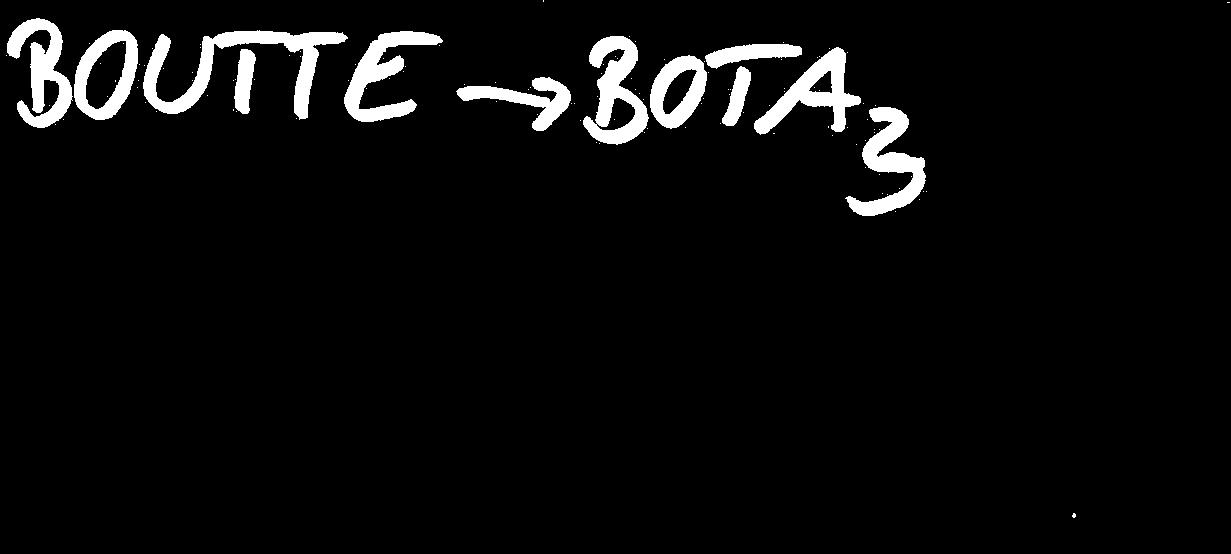 BOUTTE → BOTA3